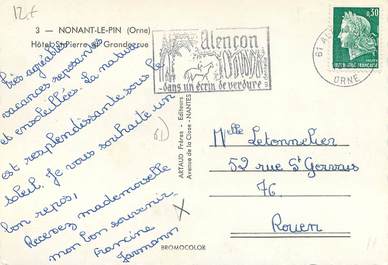 12€
3 — NONANT-LE-PIN (Orne)
Hôtel St-Pierre et Granderue
Alençon
ORNE
dans un écrin de verdure
61 AL
ORNE
0,30
ARTAUD Frères - Editeurs
Avenue de la Close - NANTES
61)
Très agréables
vacances reposantes
et ensoleillées. La nature
est resplendissante sous le
soleil. Je vous souhaite un
bon repos,
Recevez mademoiselle
mon bon souvenir.
Francine
BROMOCOLOR
Melle Letonnelier
52 rue St Gervais
76
Rouen